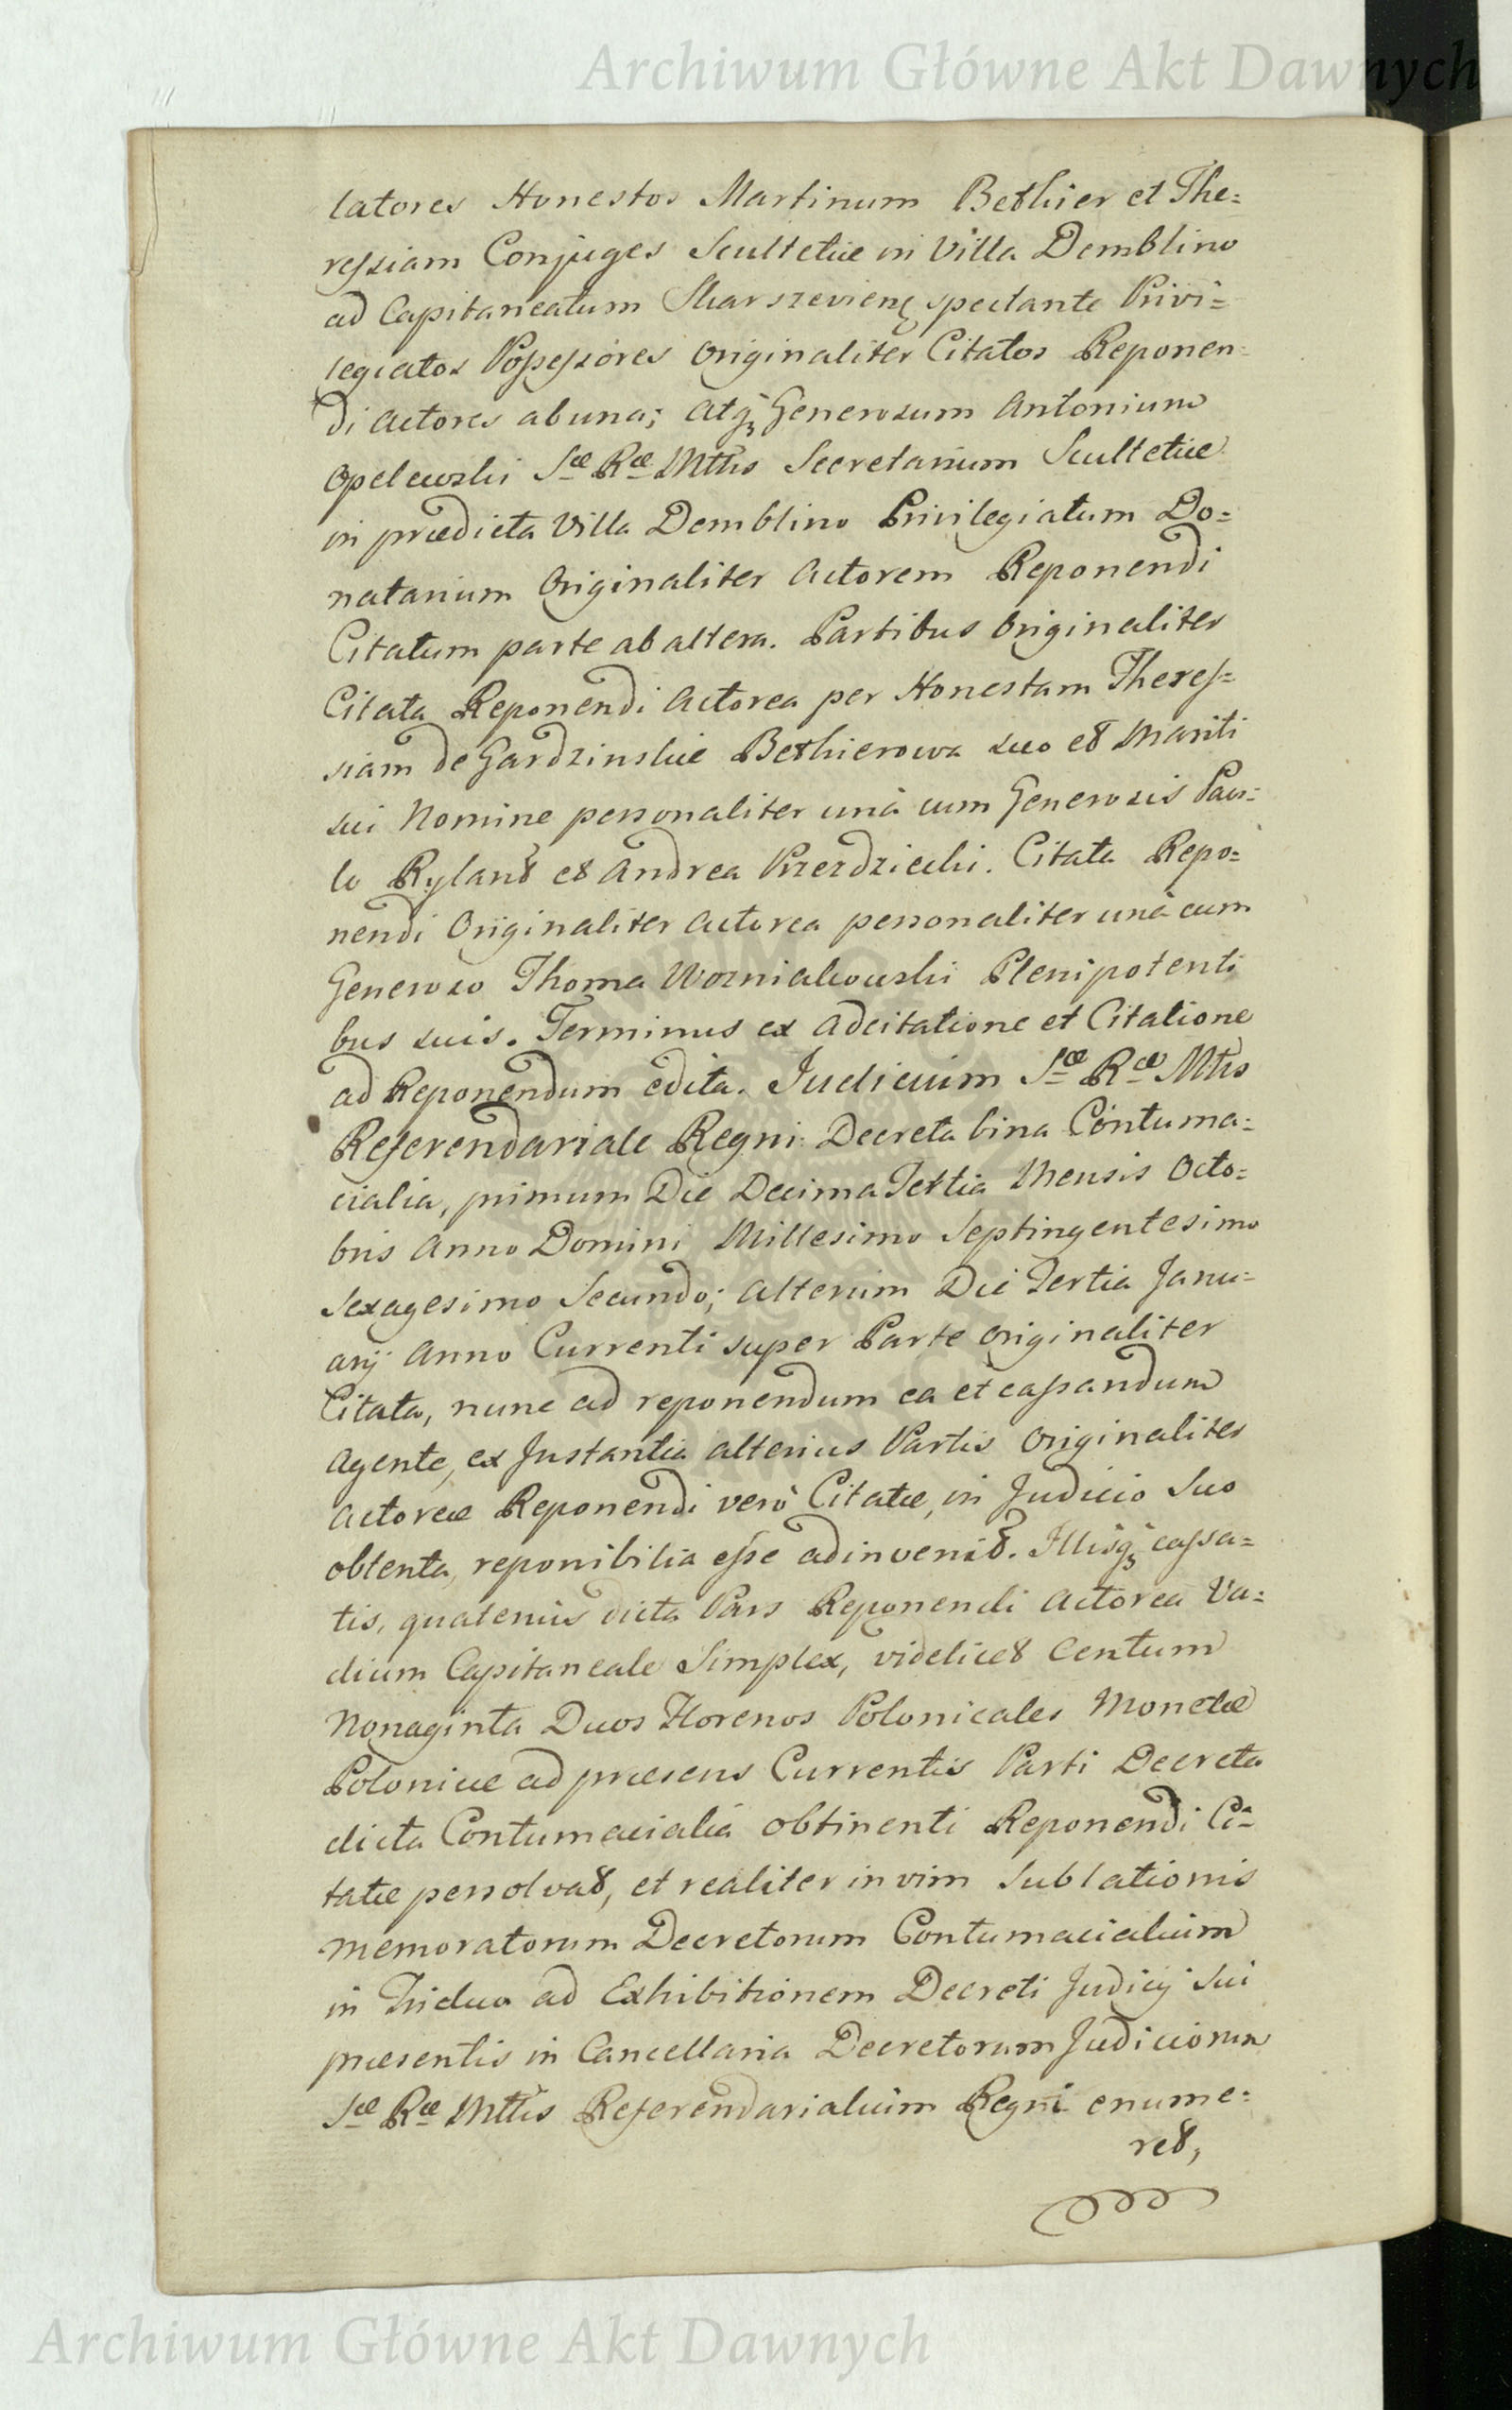 Archiwum Główne Akt Dawnych
latores Honestos Martinum Bethier et The=
ressiam Conjuges Scultetiæ in Villa Demblino
ad Capitaneatum Skarszevien spectante Privi=
legiatos Possessores Originaliter Citatos Reponen=
di Actores ab una; Atq3 Generosum Antonium
Opelewski Sæ Ræ Mttis Secretarium Scultetiæ
in prædicta Villa Demblino Privilegiatum Do=
natarium Originaliter Actorem Reponendi
Citatum parte ab altera. Partibus Originaliter
Citata Reponendi Actorea per Honestam Theres=
siam de Gardzinskie Bethierowa suo et Mariti
sui Nomine personaliter unà cum Generosis Pau=
lo Ryland et Andrea Przezdziecki. Citata Repo=
nendi Originaliter Actorea personaliter unà cum
Generoso Thoma Wozniakowski Plenipotenti
bus suis. Terminus ex Adcitatione et Citatione
ad Reponendum edita. Judicium Sæ Ræ Mttis
Referendariale Regni Decreta bina Contuma=
cialia, primum Die Decima Tertia Mensis Octo=
bris Anno Domini Millesimo Septingentesimo
Sexagesimo Secundo; alterum Die Tertia Janu=
arij Anno Currenti super Parte Originaliter
Citata, nunc ad reponendum ea et cassandum
Agente, ex Instantia alterius Partis Originaliter
Actoreæ Reponendi verò Citatæ, in Judicio Suo
obtenta, reponibilia esse adinvenit. Illisq3 cassa=
tis, quatenus dicta Pars Reponendi Actorea Va=
dium Capitaneale Simplex, videlicet Centum
Nonaginta Duos Florenos Polonicales Monetæ
Polonicæ ad præsens Currentis Parti Decreta
dicta Contumacialia obtinenti Reponendi Ci=
tatæ persolvat, et realiter in vim Sublationis
memoratorum Decretorum Contumacialium
in Triduo ad Exhibitionem Decreti Judicij Sui
præsentis in Cancellaria Decretorum Judiciorum
Sæ Ræ Mttis Referendarialium Regni enume=
ret,
Archiwum Główne Akt Dawnych